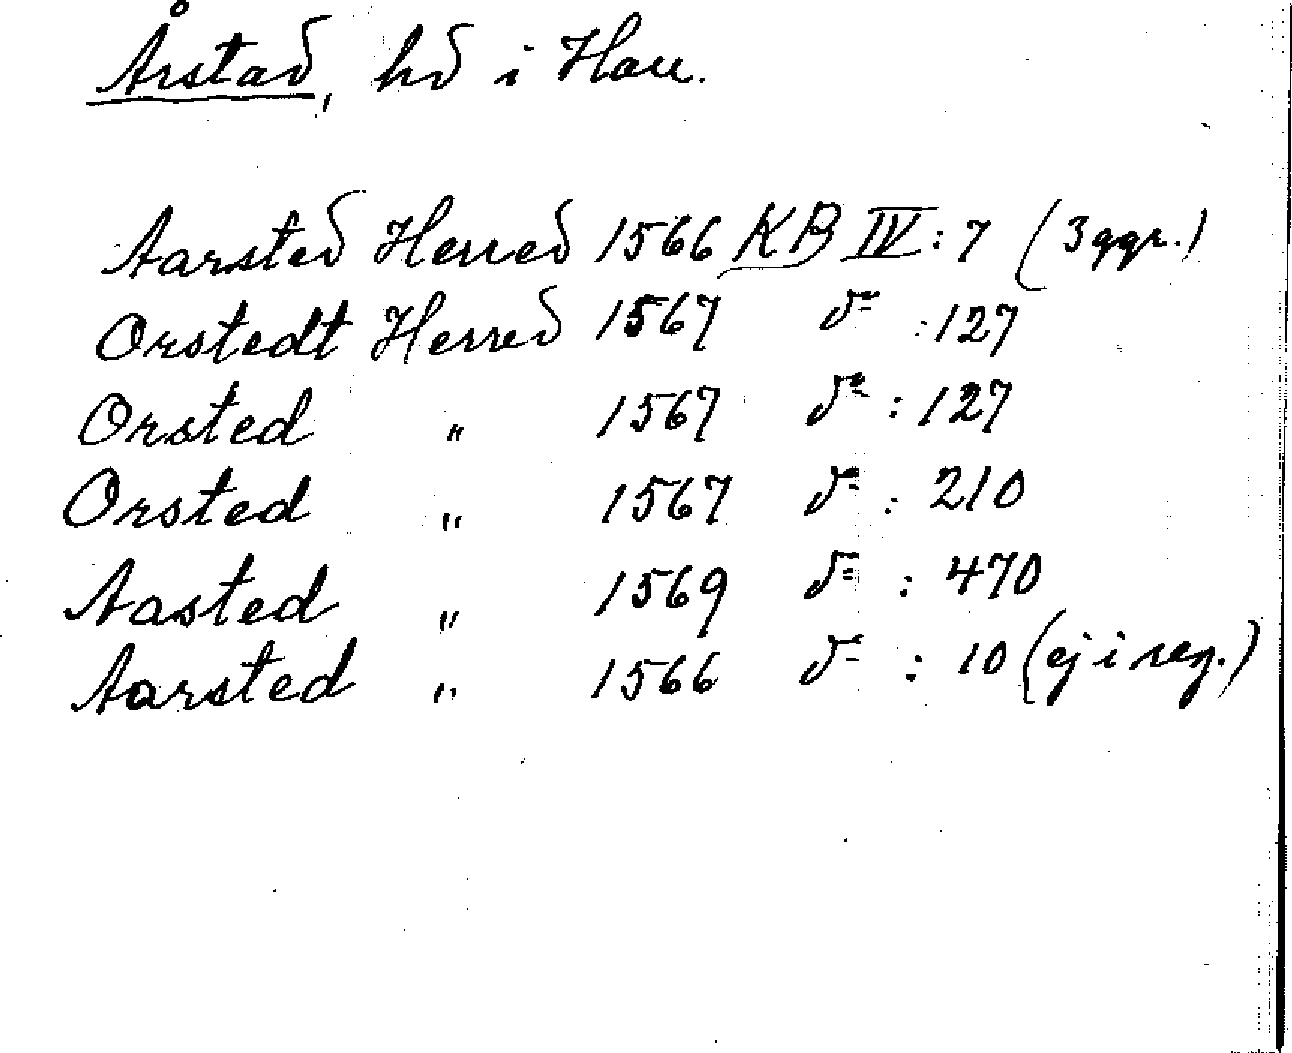 Årstad, hd i Hall.
Aarsted Herred 1566 KB IV: 7 (3 ggr.)
Orstedt Herred 1567 d:o :127
Orsted " 1567 d:o : 127
Orsted " 1567 d:o : 210
Aasted " 1569 d:o : 470
Aarsted " 1566 d:o : 10 (ej i reg.)